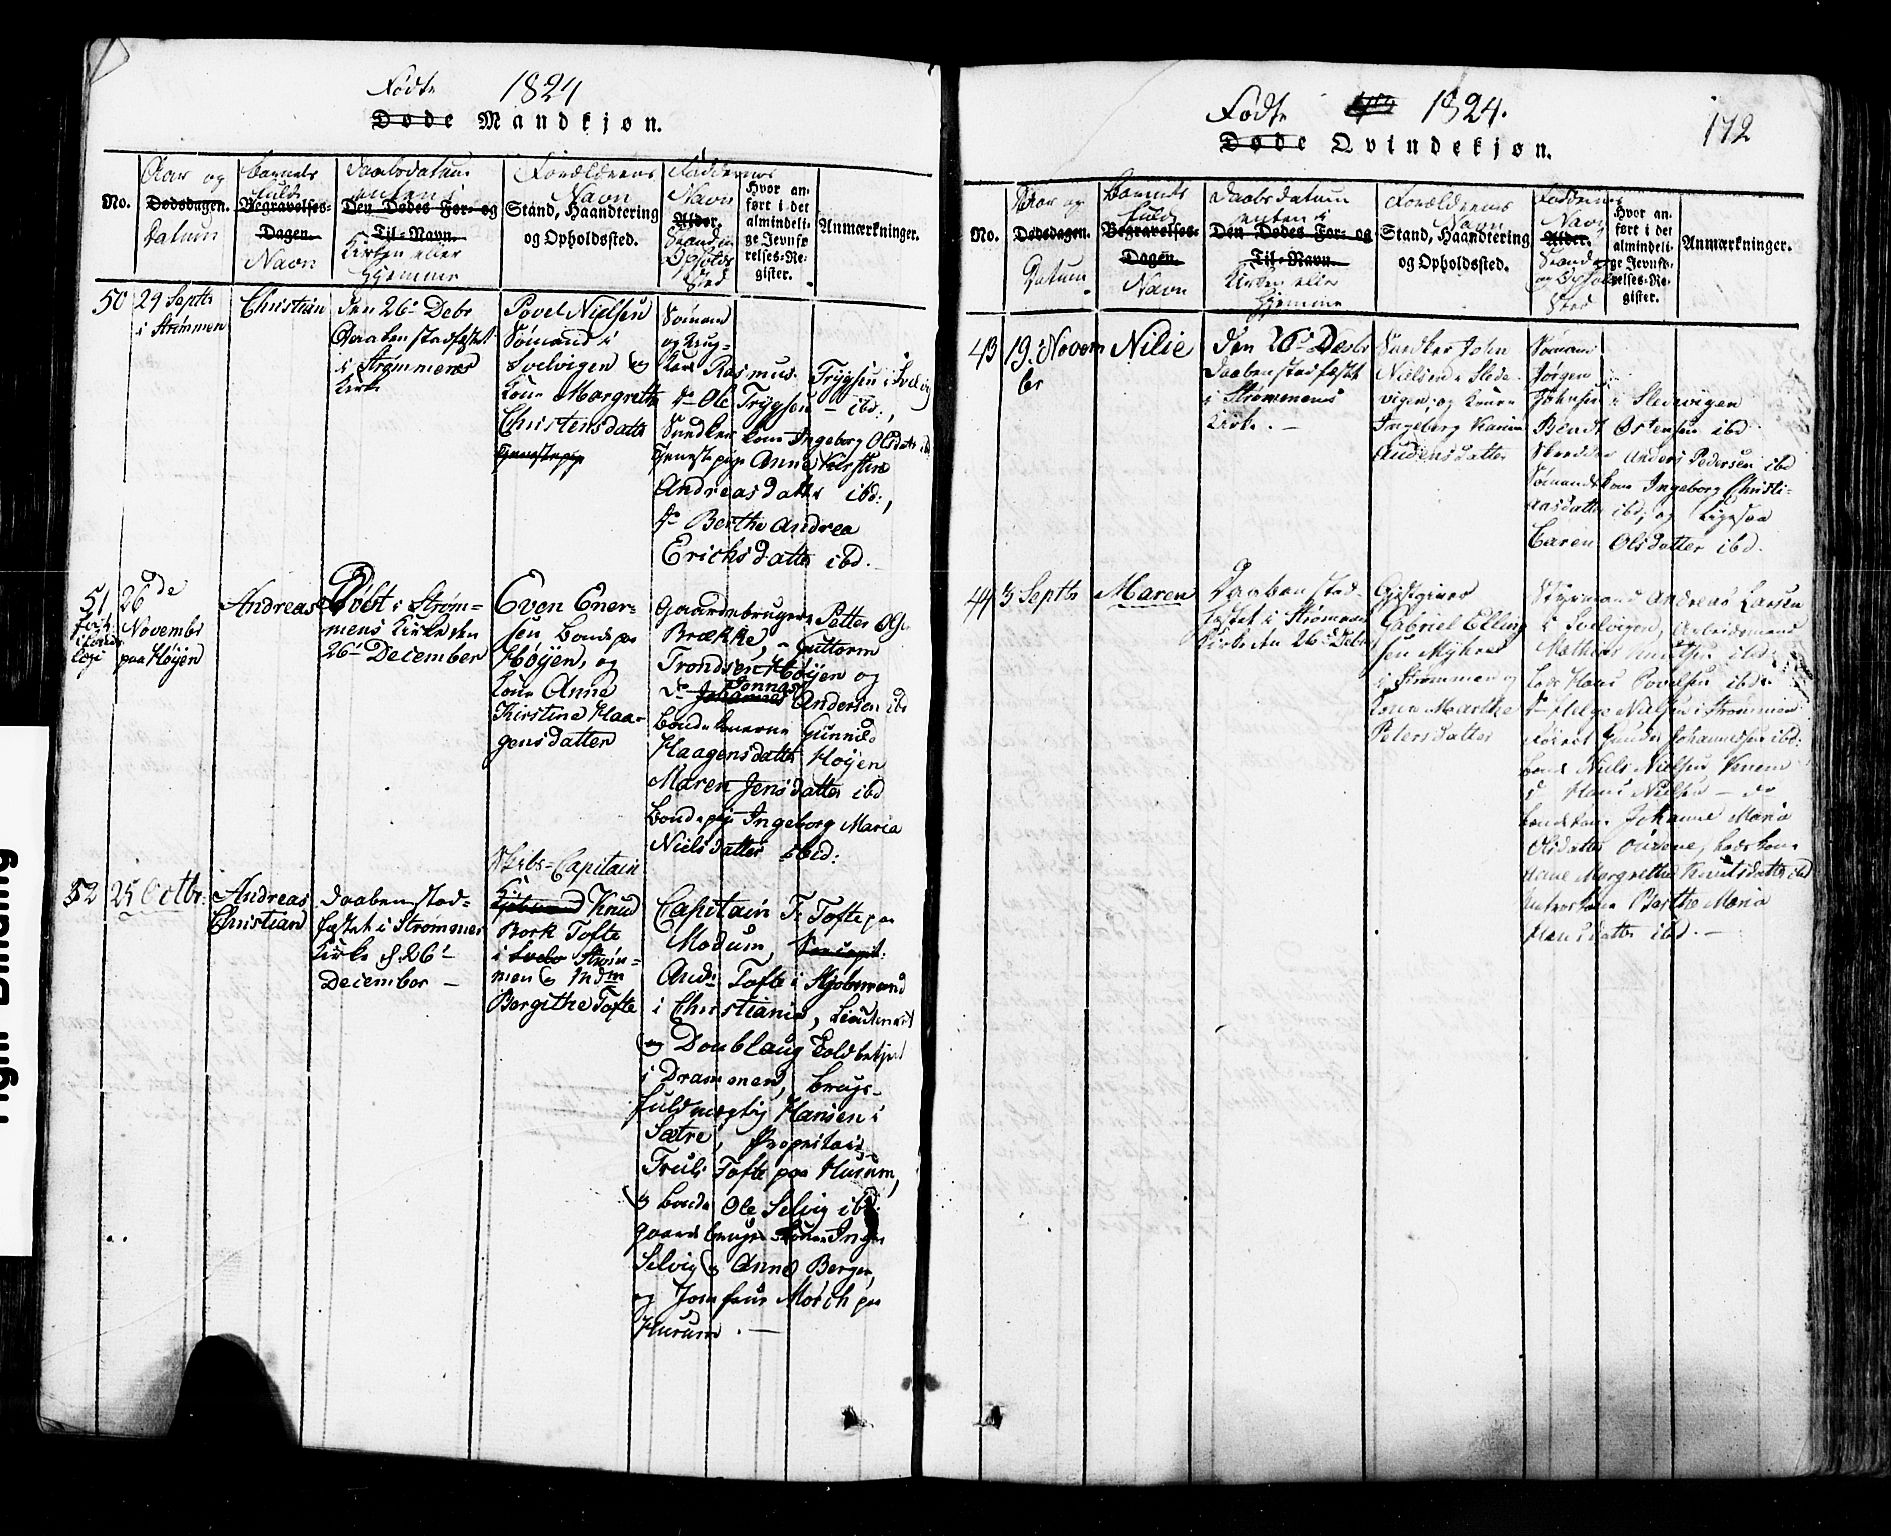 Fødte 1824
Døde Mandkjøn.
No.
Aar og
Dødsdagen.
Datum
Barnets
fulde
Begravelses-
Dagen.
Navn
Daabsdatum
enten i
Den Dødes For- og
Til-Navn.
Kirken eller
Hjemme
Forældrenes
Navn
Stand, Haandtering
og Opholdssted.
Faddernes
Navn
Alder.
Stand og
Opholds
Sted
Hvor an-
ført i det
almindeli-
ge Jevnfø
relses-Re-
gister.
Anmærkninger.
50
29 Septbr
i Strømmen
Christian
den 26 Debr
Daaben stadfæstet
i Strømmens
Kirke
Povel Nielsen
Sømand i
Svelvigen og
Kone Margrethe
Christensdatter
Tjenestepige
Sømand
Rasmus Trygsen i Svelvig
do Ole Trygsen - ibd:,
Kone Ingeborg Olsdatter ibd
Tjenestepige Anne Kirstine
Andreasdatter ibd:,
do Berthe Andrea
Erichsdatter ibd.
51
26de
Novembr
paa Høyen
Andreas
Døbt i Strøm-
mens Kirke den
26 December
Even Ener-
sen Bonde paa
Høyen, og
Kone Anne
Kirstine Haa-
gensdatter
Gaardbruger Petter
Brække, Guttorm
Trondsen Høyen og
Jonnas
do Johannes Andersen ibd
Bondekonerne Gunnild
Haagensdatter Høyen
Maren Jensdatter ibd
Bondepige Ingeborg Maria
Nielsdatter ibid:
52
25 Octbr:
Andreas
Christian
Daaben stad-
fæstet i Strømmens
Kirke d 26
December -
Skibs-Capitain
Knud
Bork Tofte
i Svelv Strøm-
men og Mdm
Bergithe Tofte
Capitain F. Tofte paa
Modum,
Andr Tofte i Kjøbmand
i Christiania, Lieutenant
og Doublaug Toldbetjent
i Drammen, Brugs-
fuldmægtig Hansen i
Sætre, Proprietair
Truls Tofte paa Hurum,
og Bonde Ole Selvig ibd:
Gaardbruger Kone Inger
Selvig og Anne Berger,
og Jomfrue Morch paa
Hurum. -
Fødte 1824.
172
Døde Qvindekjøn.
No.
Aar og
Dødsdagen.
Datum
Barnets
fulde
Begravelses-
Dagen.
Navn
Daabsdatum
enten i
Den Dødes For- og
Til-Navn.
Kirken eller
Hjemme
Forældrenes
Navn
Stand, Haandtering
og Opholdssted.
Faddernes
Navn
Alder.
Stand
og Opholds
Sted
Hvor an-
ført i det
almindeli-
ge Jevnfø-
relses-Re-
gister.
Anmærkninger.
43
19. Novem
br
Nilie
den 26 Decbr
Daaben stadfæstet
i Strømmens
Kirke. -
Snedker John
Nielsen i Slede-
vigen, og Kone
Ingeborg Karine
Audensdatter
Sømand
Jørgen
Johnsen i Sledevigen
Berndt Østensen ibd
Skredder Anders Pedersen ibd
Sømandskone Ingeborg Christi-
ansdatter ibd, og Ligesaa
Caren Olsdatter ibd.
44
3 Septbr
Maren
Daaben stad-
fæstet i Strømmens
Kirke den 26 Debr
Gjestgiver
Gabriel Elling
sen Myhre
i Strømmen og
Kone Marthe
Petersdatter
Styrmand Andreas Larsen
i Svelvigen, Arbeidsmand
Mathias Knutsen ibd:
Lods Hans Povelsen ibd:
do Helge Nielsen i Strømmen
Gunder Johannessen ibd:
Bonde Niels Nielsen Knem
d Hans Nielsen - do
Bondekone Johanne Maria
Olsdatter
Margrethe Knutsdatter ibd
Berthe Maria
Hansdatter ibd. -